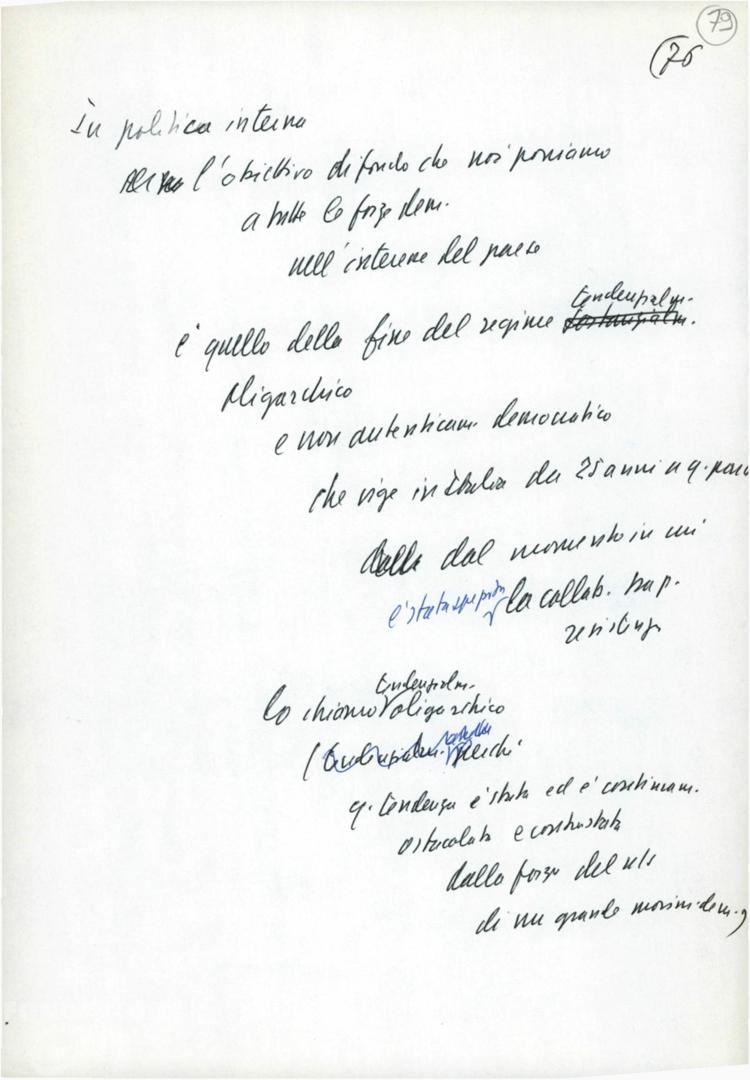 79
(76
In politica interna
l'obiettivo di fondo che noi poniamo
a tutte le forze dem.
nell'interesse del paese
è quello della fine del regime tendenzialm.
oligarchico
e non autenticam. democratico
che vige in Italia da 25 anni a q. parte
dal momento in cui
è stata spezzata la collab. tra p.
resistenza
lo chiamo tendenzialm. oligarchico
(tendenzialm. perché
q. tendenza è stata ed è continuam.
ostacolata e contrastata
dalla forza del
di un grande movim. dem.)